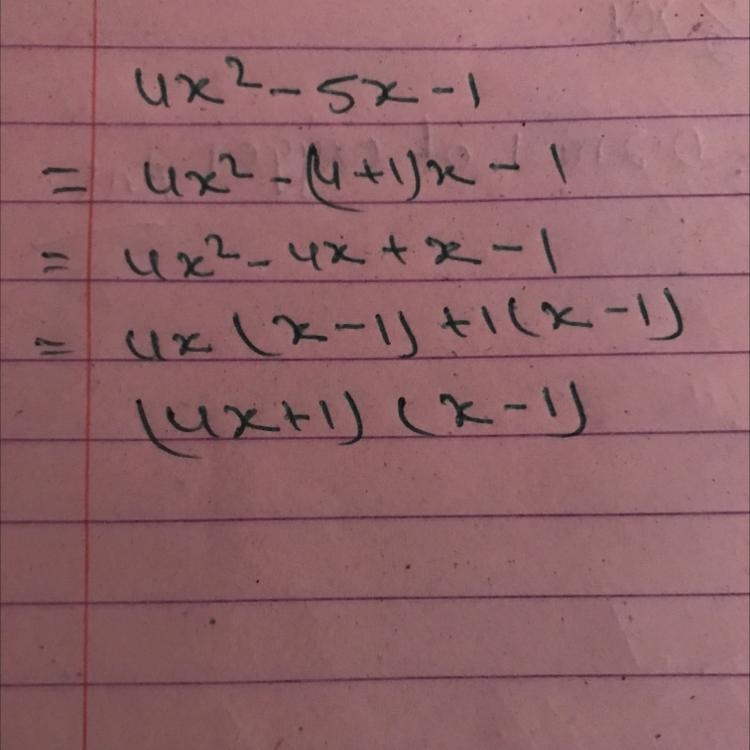 4x² - 5x - 1
= 4x² - (4+1)x - 1
= 4x² - 4x + x - 1
= 4x (x-1) +1(x-1)
(4x+1) (x-1)